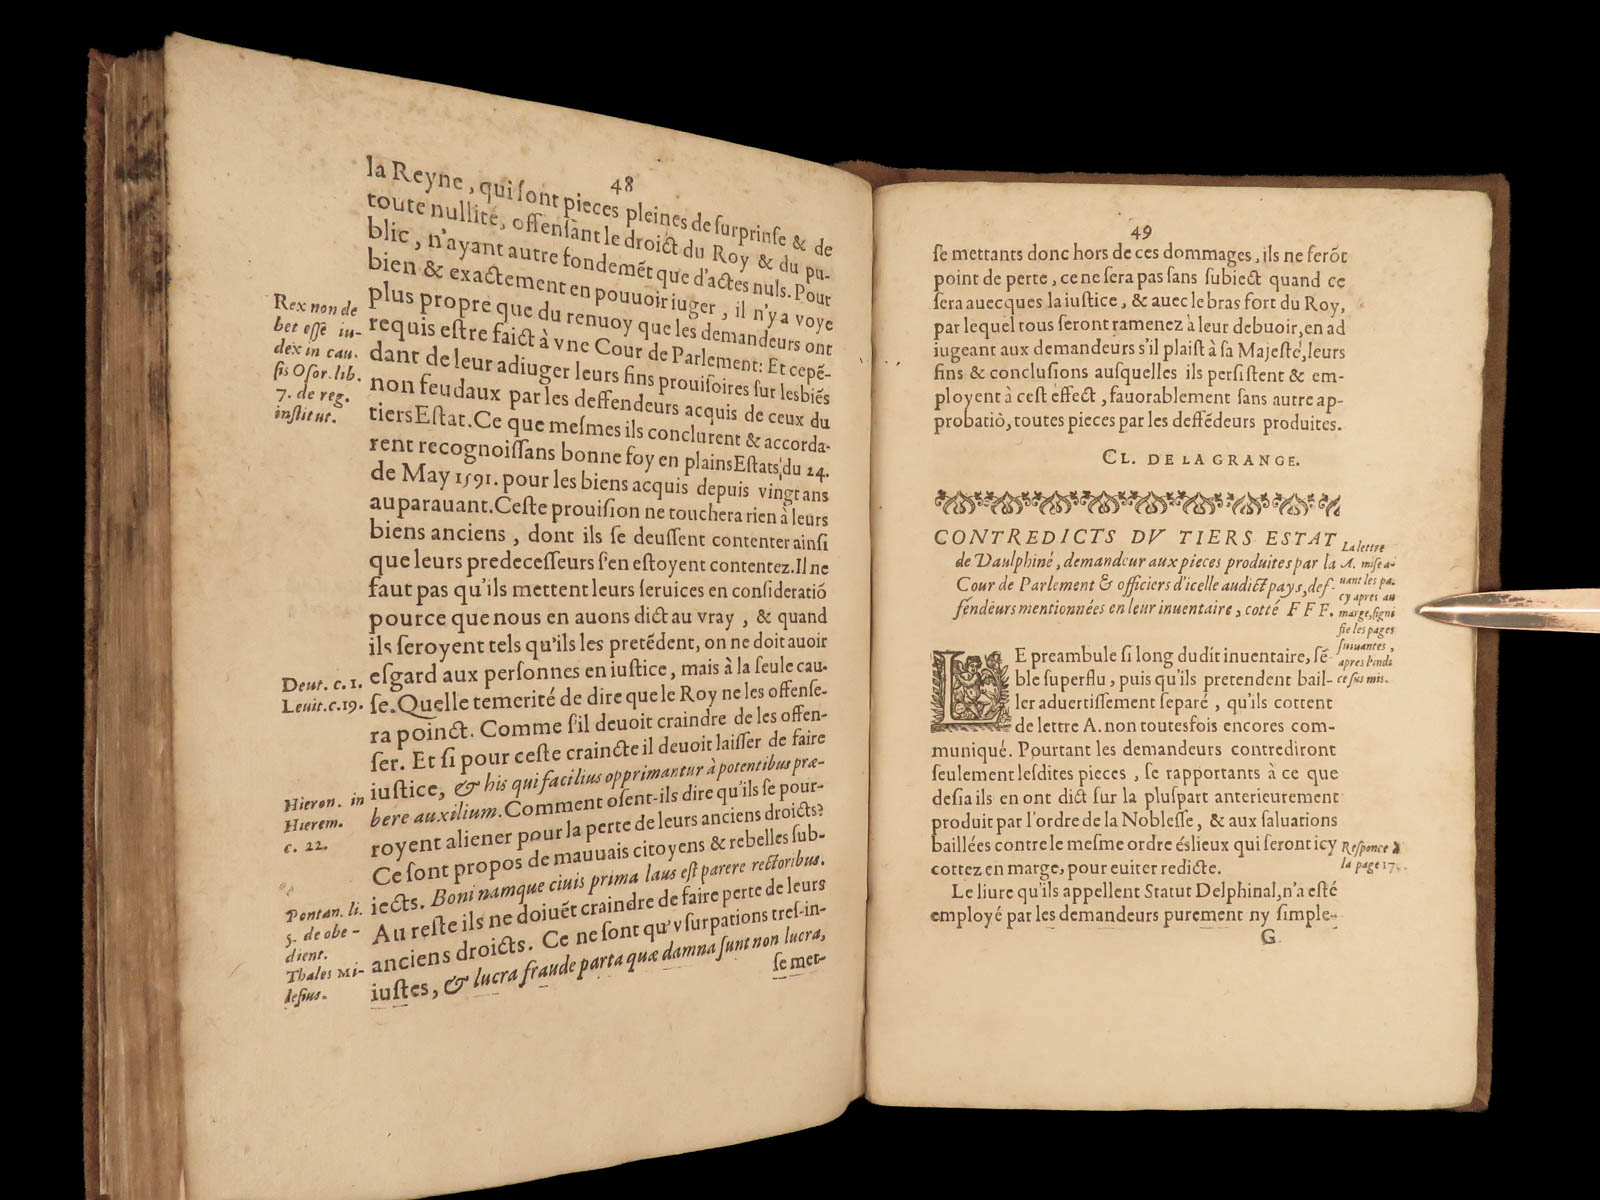 48
la Reyne, qui ſont pieces pleines de ſurprinſe & de
toute nullité, offenſant le droict du Roy & du pu-
blic, n'ayant autre fondemẽt que d'actes nuls. Pour
bien & exactement en pouuoir iuger, il n'y a voye
plus propre que du renuoy que les demandeurs ont
requis eſtre faict à vne Cour de Parlement: Et cepẽ-
dant de leur adiuger leurs fins prouiſoires ſur les biẽs
non feudaux par les deffendeurs acquis de ceux du
tiers Eſtat. Ce que meſmes ils conclurent & accorda-
rent recognoiſſans bonne foy en plains Eſtats, du 24.
de May 1591. pour les biens acquis depuis vingt ans
auparauant. Ceſte prouiſion ne touchera rien à leurs
biens anciens, dont ils ſe deuſſent contenter ainſi
que leurs predeceſſeurs s'en eſtoyent contentez. Il ne
faut pas qu'ils mettent leurs ſeruices en conſideratiõ
pource que nous en auons dict au vray, & quand
ils ſeroyent tels qu'ils les pretẽdent, on ne doit auoir
eſgard aux perſonnes en iuſtice, mais à la ſeule cau-
ſe. Quelle temerité de dire que le Roy ne les offenſe-
ra poinct. Comme s'il deuoit craindre de les offen-
ſer. Et ſi pour ceſte craincte il deuoit laiſſer de faire
iuſtice, & his qui facilius opprimantur à potentibus præ-
bere auxilium. Comment oſent-ils dire qu'ils ſe pour-
royent aliener pour la perte de leurs anciens droicts?
Ce ſont propos de mauuais citoyens & rebelles ſub-
iects. Boni namque ciuis prima laus eſt parere rectoribus.
Au reſte ils ne doiuẽt craindre de faire perte de leurs
anciens droicts. Ce ne ſont qu'vſurpations treſ-in-
iuſtes, & lucra fraude parta quæ damna ſunt non lucra,
ſe met-
Rex non de
bet eſſe iu-
dex in cau-
ſis Oſor. lib.
7. de reg.
inſtitut.
Deut. c. 1.
Leuit. c. 19.
Hieron. in
Hierem.
c. 22.
Pontan. li.
5. de obe-
dient.
Thales Mi-
leſius.
49
ſe mettants donc hors de ces dommages, ils ne ferõt
point de perte, ce ne ſera pas ſans ſubiect quand ce
ſera auecques la iuſtice, & auec le bras fort du Roy,
par lequel tous ſeront ramenez à leur debuoir, en ad
iugeant aux demandeurs s'il plaiſt à ſa Majeſté, leurs
fins & concluſions auſquelles ils perſiſtent & em-
ployent à ceſt effect, fauorablement ſans autre ap-
probatiõ, toutes pieces par les deffẽdeurs produites.
CL. DE LA GRANGE.
CONTREDICTS DV TIERS ESTAT
de Daulphiné, demandeur aux pieces produites par la
Cour de Parlement & officiers d'icelle audict pays, def-
fẽndeurs mentionnées en leur inuentaire, cotté FFF.
La lettre
A. miſe a-
uant les pa.
cy apres au
marge, ſigni
fie les pages
ſuiuantes,
apres l'indi
ce ſus mis.
LE preambule ſi long dudit inuentaire, ſẽ-
ble ſuperflu, puis qu'ils pretendent bail-
ler aduertiſſement ſeparé, qu'ils cottent
de lettre A. non toutesfois encores com-
muniqué. Pourtant les demandeurs contrediront
ſeulement leſdites pieces, ſe rapportants à ce que
deſia ils en ont dict ſur la pluſpart anterieurement
produit par l'ordre de la Nobleſſe, & aux ſaluations
baillées contre le meſme ordre éslieux qui ſeront icy
cottez en marge, pour euiter redicte.
Reſponce à
la page 17.
Le liure qu'ils appellent Statut Delphinal, n'a eſté
employé par les demandeurs purement ny ſimple-
G